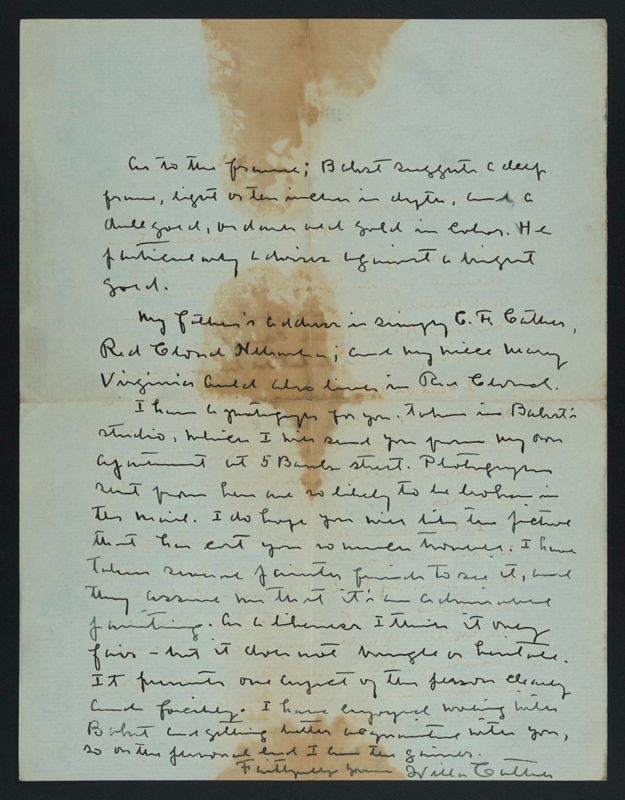 As to the frame; Bakst suggests a deep
frame, eight or ten inches in depth, and a
dull gold, or dark red gold in color. He
particularly advises against a bright
gold.
My father's address is simply C. F. Cather,
Red Cloud Nebraska; and my niece Mary
Virginia Auld also lives in Red Cloud.
I have a photograph for you, taken in Bakst's
studio, which I will send you from my own
apartment at 5 Bank street. Photographs
sent from here are so likely to be broken in
the mail. I do hope you will like the picture
that has cost you so much trouble. I have
taken several painter friends to see it, and
they assure me that it's an admirable
painting. As a likeness I think it very
fair - but it does not bungle or hesitate.
It presents one aspect of the person clearly
and forcibly. I have enjoyed working with
Bakst and getting better acquainted with you,
so on the personal end I am the gainer.
Faithfully yours Willa Cather